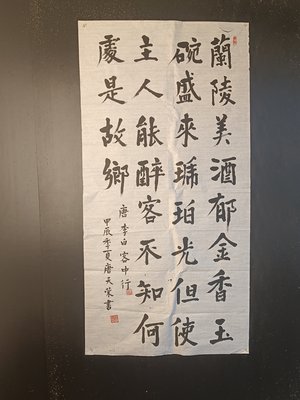 蘭陵美酒郁金香玉
碗盛來琥珀光但使
主人能醉客不知何
處是故鄉
唐李白客中行
甲辰季夏唐天榮書